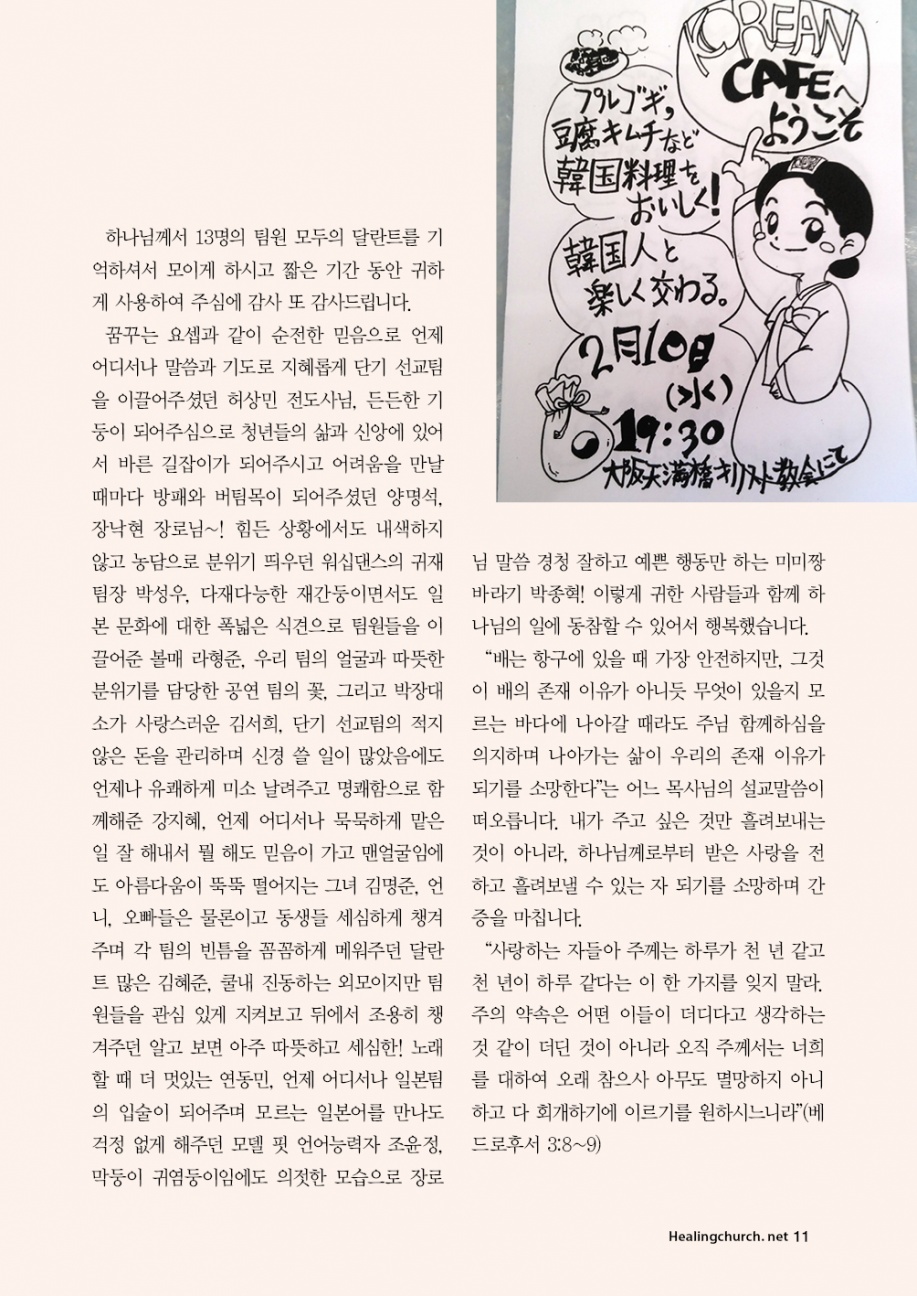 KOREAN
CAFEへ
ようこそ
プルコギ,
豆腐キムチなど
韓国料理を
おいしく!
韓国人と
楽しく交わる。
2月10日
(水)
19:30
大阪天満橋キリスト教会にて
하나님께서 13명의 팀원 모두의 달란트를 기
억하셔서 모이게 하시고 짧은 기간 동안 귀하
게 사용하여 주심에 감사 또 감사드립니다.
꿈꾸는 요셉과 같이 순전한 믿음으로 언제
어디서나 말씀과 기도로 지혜롭게 단기 선교팀
을 이끌어주셨던 허상민 전도사님, 든든한 기
둥이 되어주심으로 청년들의 삶과 신앙에 있어
서 바른 길잡이가 되어주시고 어려움을 만날
때마다 방패와 버팀목이 되어주셨던 양명석,
장낙현 장로님~! 힘든 상황에서도 내색하지
않고 농담으로 분위기 띄우던 워십댄스의 귀재
팀장 박성우, 다재다능한 재간둥이면서도 일
본 문화에 대한 폭넓은 식견으로 팀원들을 이
끌어준 볼매 라형준, 우리 팀의 얼굴과 따뜻한
분위기를 담당한 공연 팀의 꽃, 그리고 박장대
소가 사랑스러운 김서희, 단기 선교팀의 적지
않은 돈을 관리하며 신경 쓸 일이 많았음에도
언제나 유쾌하게 미소 날려주고 명쾌함으로 함
께해준 강지혜, 언제 어디서나 묵묵하게 맡은
일 잘 해내서 뭘 해도 믿음이 가고 맨얼굴임에
도 아름다움이 뚝뚝 떨어지는 그녀 김명준, 언
니, 오빠들은 물론이고 동생들 세심하게 챙겨
주며 각 팀의 빈틈을 꼼꼼하게 메워주던 달란
트 많은 김혜준, 쿨내 진동하는 외모이지만 팀
원들을 관심 있게 지켜보고 뒤에서 조용히 챙
겨주던 알고 보면 아주 따뜻하고 세심한! 노래
할 때 더 멋있는 연동민, 언제 어디서나 일본팀
의 입술이 되어주며 모르는 일본어를 만나도
걱정 없게 해주던 모델 핏 언어능력자 조윤정,
막둥이 귀염둥이임에도 의젓한 모습으로 장로
님 말씀 경청 잘하고 예쁜 행동만 하는 미미짱
바라기 박종혁! 이렇게 귀한 사람들과 함께 하
나님의 일에 동참할 수 있어서 행복했습니다.
“배는 항구에 있을 때 가장 안전하지만, 그것
이 배의 존재 이유가 아니듯 무엇이 있을지 모
르는 바다에 나아갈 때라도 주님 함께하심을
의지하며 나아가는 삶이 우리의 존재 이유가
되기를 소망한다”는 어느 목사님의 설교말씀이
떠오릅니다. 내가 주고 싶은 것만 흘려보내는
것이 아니라, 하나님께로부터 받은 사랑을 전
하고 흘려보낼 수 있는 자 되기를 소망하며 간
증을 마칩니다.
“사랑하는 자들아 주께는 하루가 천 년 같고
천 년이 하루 같다는 이 한 가지를 잊지 말라.
주의 약속은 어떤 이들이 더디다고 생각하는
것 같이 더딘 것이 아니라 오직 주께서는 너희
를 대하여 오래 참으사 아무도 멸망하지 아니
하고 다 회개하기에 이르기를 원하시느니라”(베
드로후서 3:8~9)
Healingchurch.net 11